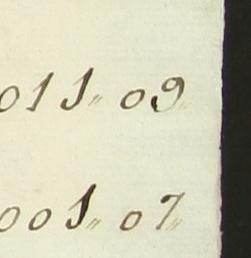 011〃 09〃
001〃 07〃